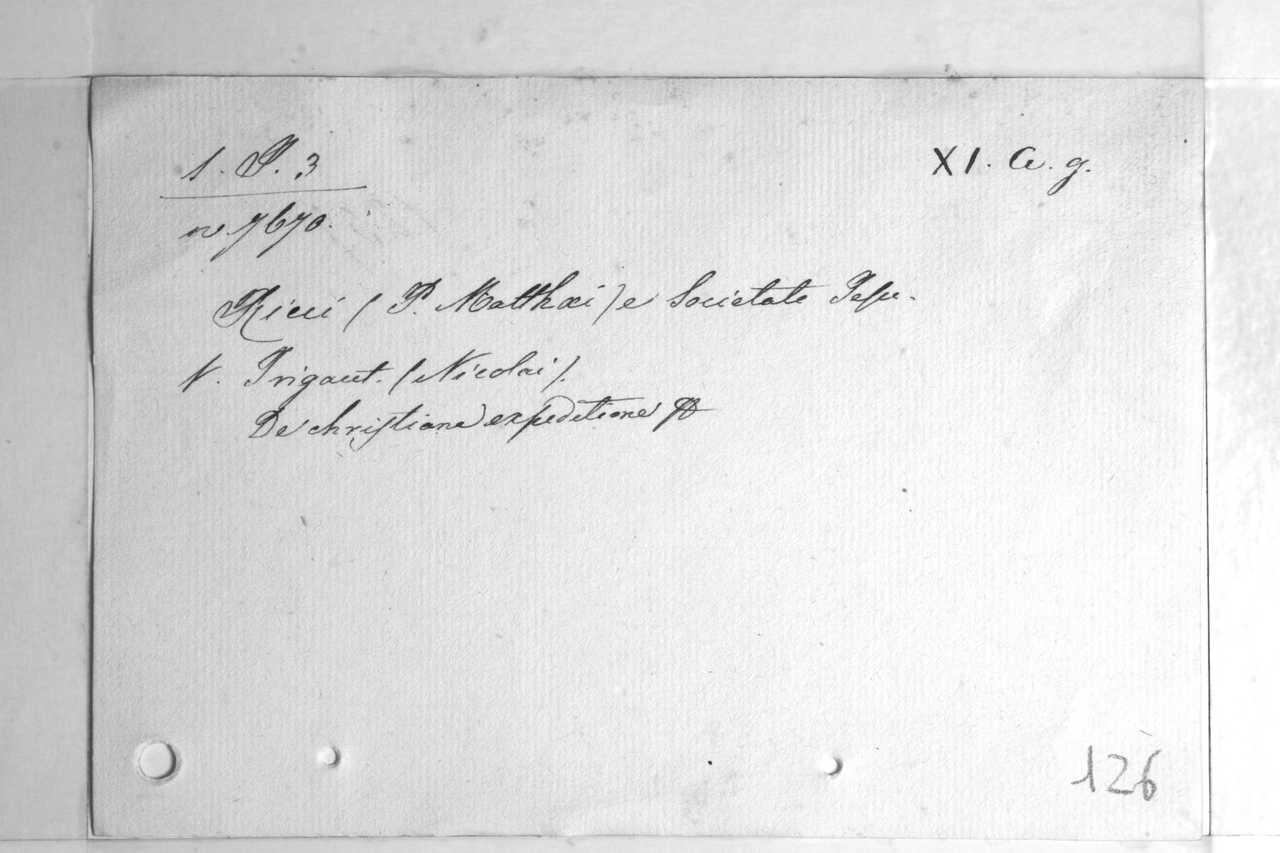 1. P. 3
XI. a. g.
nº 7670.
Ricci (P. Matthæi) e Societate Jesu.
V. Trigaut. (Nicolai).
De christiana expeditione
126